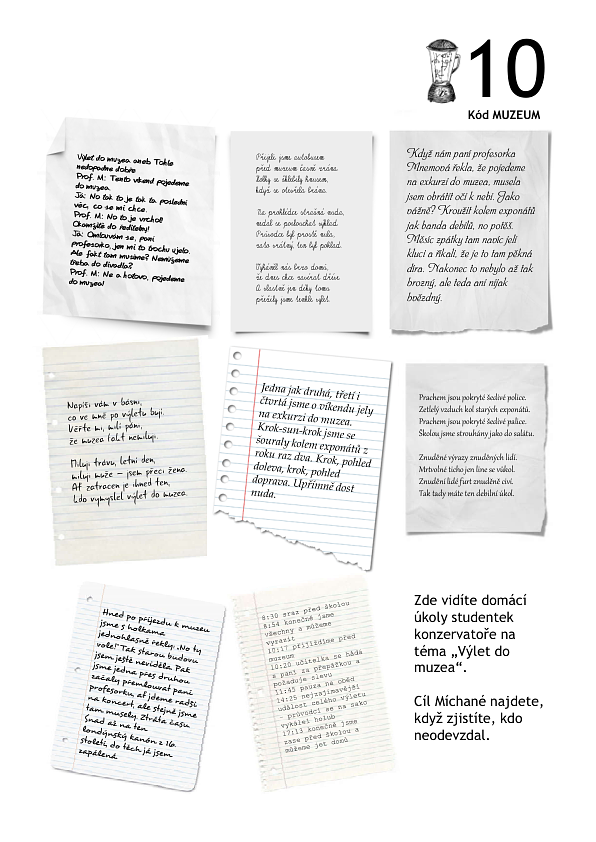 10
Kód MUZEUM
Výlet do muzea aneb Tohle
nedopadne dobře
Prof. M: Tento víkend pojedeme
do muzea.
Já: No tak to je tak ta poslední
věc, co se mi chce.
Prof. M: No to je vrchol!
Okamžitě do ředitelny!
Já: Omlouvám se, paní
profesorko, jen mi to trochu ujelo.
Ale fakt tam musíme? Nemůžeme
třeba do divadla?
Prof. M: Ne a hotovo, pojedeme
do muzea!
Přijeli jsme autobusem
před muzeum časné ráno.
Holky se šklebily hnusem,
když se otevřela brána.
Na prohlídce strašná nuda,
nedal se poslouchat výklad.
Průvodce byl prostě nula,
zato vrátný, ten byl poklad.
Vyháněl nás brzo domů,
že dnes chce zavírat dříve.
A vlastně jen díky tomu
přežily jsme tenhle výlet.
Když nám paní profesorka
Mnemová řekla, že pojedeme
na exkurzi do muzea, musela
jsem obrátit oči k nebi. Jako
vážně? Kroužit kolem exponátů
jak banda debilů, no potěš.
Měsíc zpátky tam navíc jeli
kluci a říkali, že je to tam pěkná
díra. Nakonec to nebylo až tak
hrozný, ale teda ani nijak
hvězdný.
Napíši vám v básni,
co ve mně po výletu byjí.
Věřte mi, milí páni,
že muzea fakt nemiluji.
Miluji trávu, letní den,
miluji muže – jsem přeci žena.
Ať zatracen je ihned ten,
kdo vymyslel výlet do muzea.
Jedna jak druhá, třetí i
čtvrtá jsme o víkendu jely
na exkurzi do muzea.
Krok-sun-krok jsme se
šouraly kolem exponátů z
roku raz dva. Krok, pohled
doleva, krok, pohled
doprava. Upřímně dost
nuda.
Prachem jsou pokryté šedivé police.
Zetlelý vzduch kol starých exponátů.
Prachem jsou pokryté šedivé palice.
Školou jsme strouhány jako do salátu.
Znuděné výrazy znuděných lidí.
Mrtvolné ticho jen line se vůkol.
Znudění lidé furt znuděně civí.
Tak tady máte ten debilní úkol.
Hned po příjezdu k muzeu
jsme s holkama
jednohlasně řekly: „No ty
vole!" Tak starou budovu
jsem ještě neviděla. Pak
jsme jedna přes druhou
začaly přemlouvat paní
profesorku, ať jdeme radši
na koncert, ale stejně jsme
tam musely. Ztráta času.
Snad až na ten
londýnský kánón z 16.
století, do těch já jsem
zapálená.
8:30 sraz před školou
8:54 konečně jsme
všechny a můžeme
vyrazit
10:17 přijíždíme před
muzeum
10:20 učitelka se hádá
s paní za přepážkou a
požaduje slevu
11:45 pauza na oběd
14:25 nejzajímavější
událost celého výletu
- průvodci se na sako
vykálel holub
17:13 konečně jsme
zase před školou a
můžeme jet domů
Zde vidíte domácí
úkoly studentek
konzervatoře na
téma „Výlet do
muzea“.
Cíl Míchané najdete,
když zjistíte, kdo
neodevzdal.